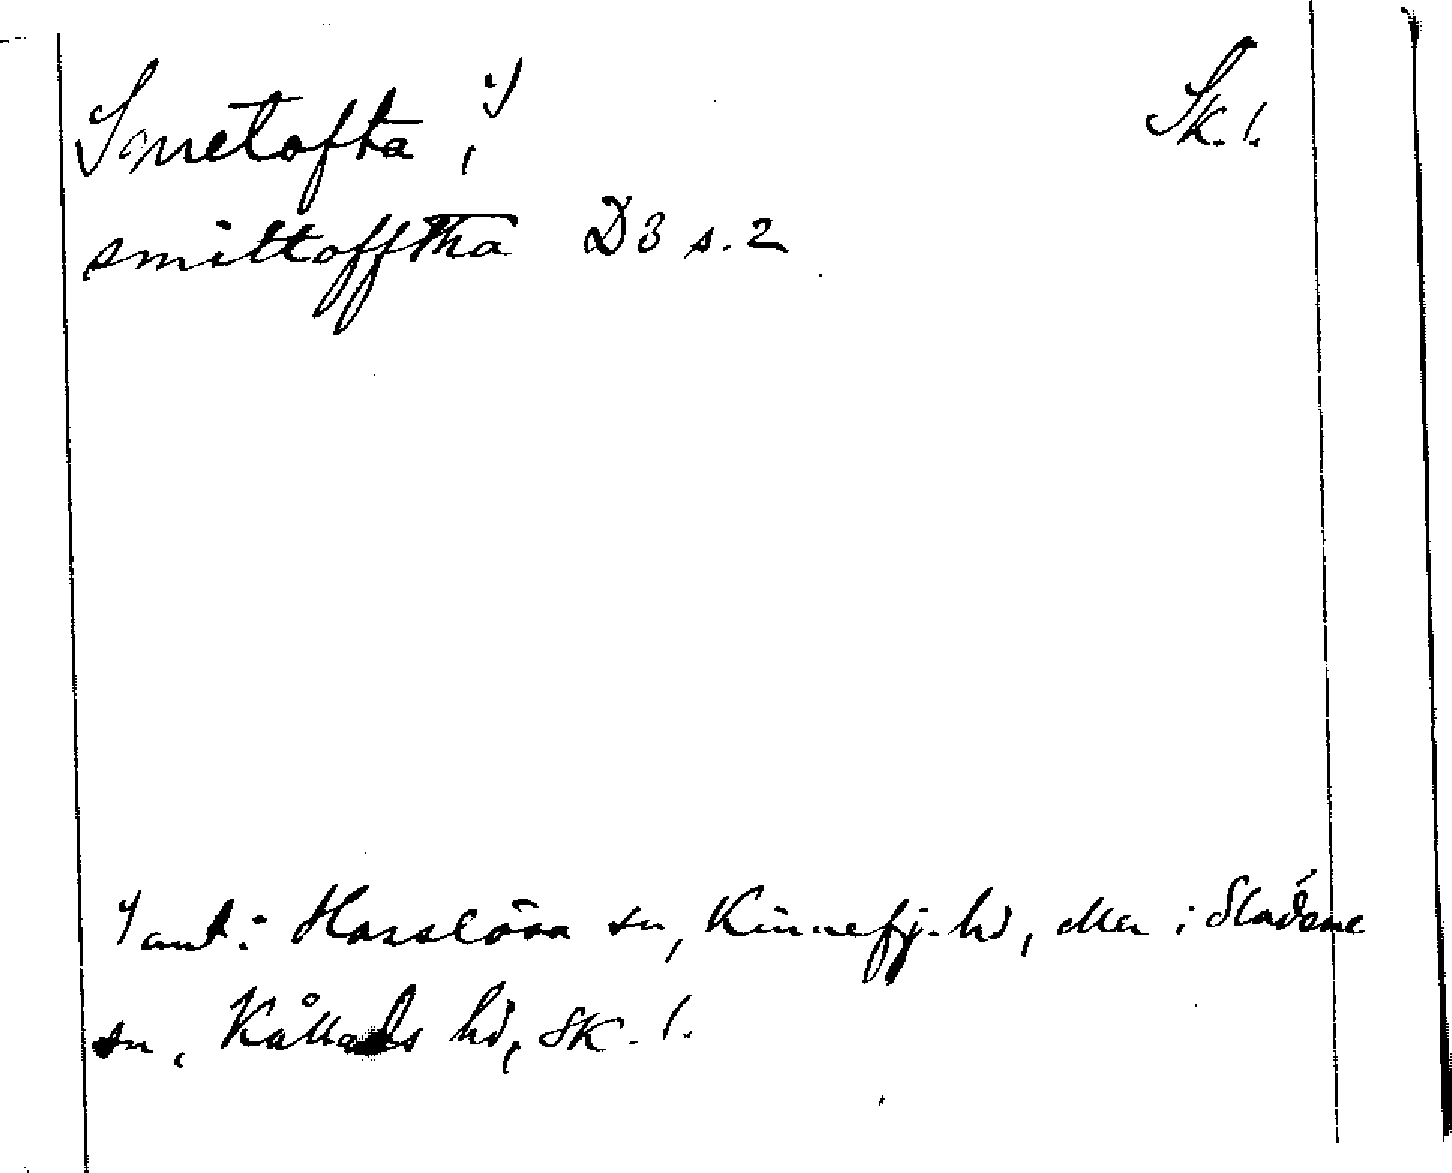 Smetofta, 1) Sk. l.
smittofftha D3 s. 2
1) ant. i Hasslösa sn, Kinnefj. hd, eller i Sladene
sn, Kållands hd, Sk. l.